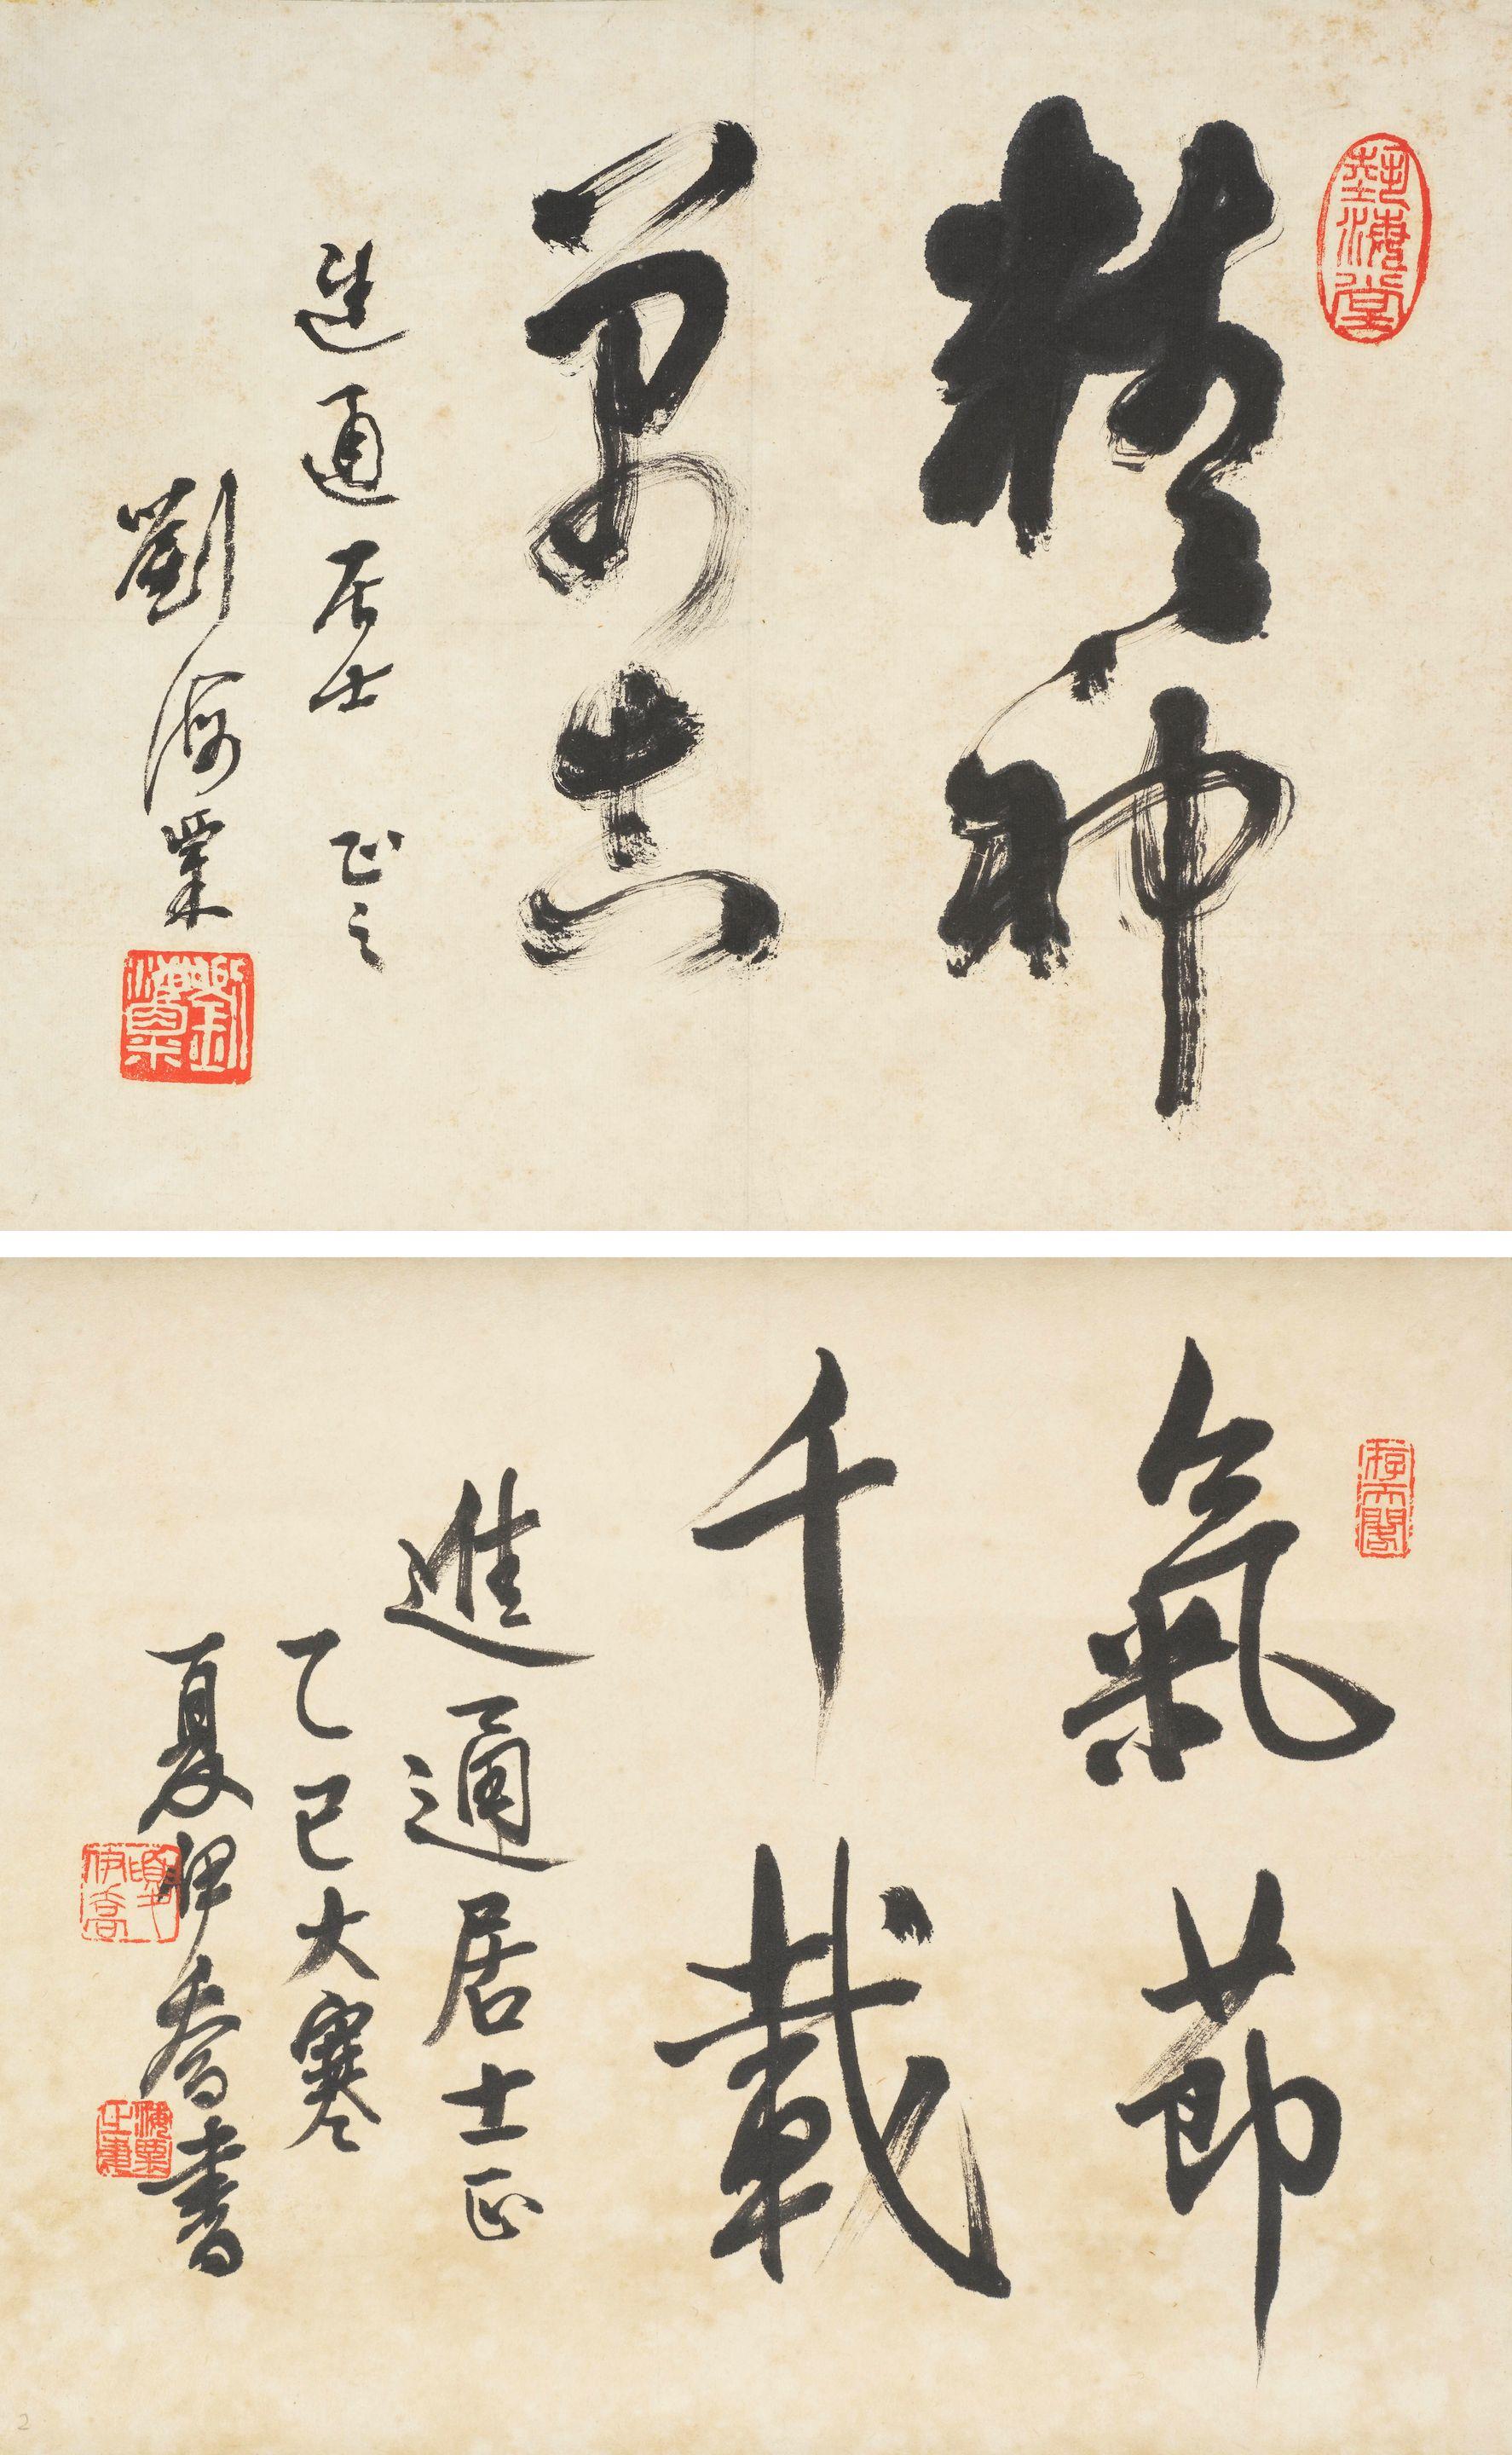 藝海堂
精神
萬古
進通居士 正之
劉海粟
劉海粟
氣節
千載
進通居士正
乙巳大寒
夏伊喬書
夏伊喬